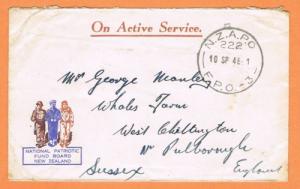 On Active Service.
N.Z.A.P.O
222
10 SP 46-1
F.P.O.-3-
Mr George Manley
Whales Farm
West Chiltington
Nr Pulborough
Sussex
England
NATIONAL PATRIOTIC
FUND BOARD
NEW ZEALAND